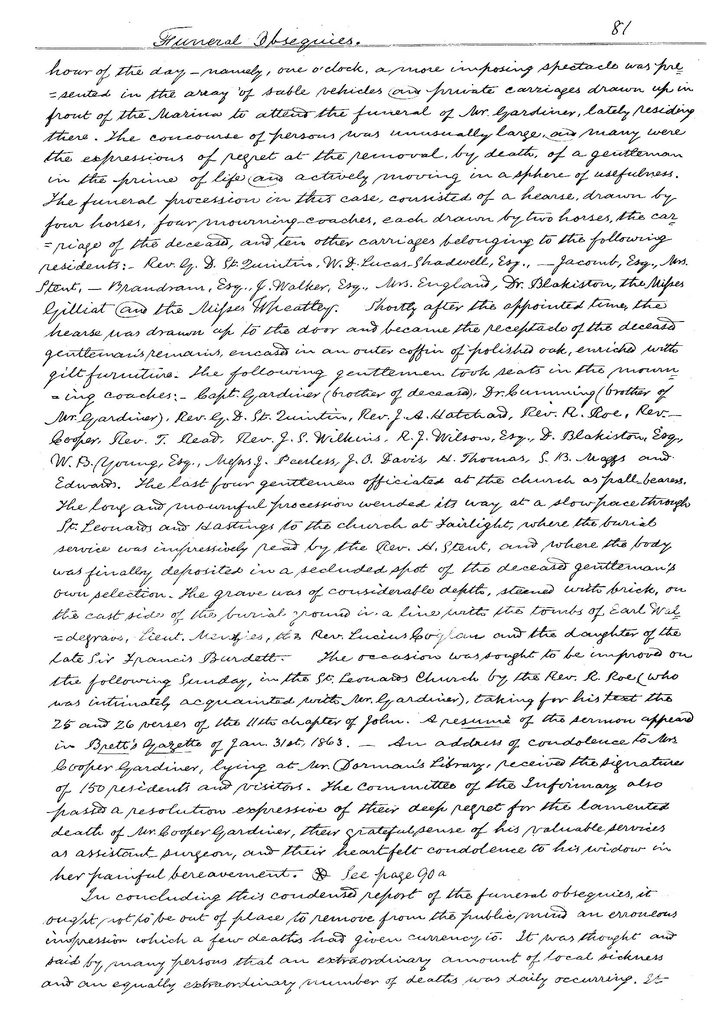 Funeral Obsequies. 81
hour of the day – namely, one o'clock, a more imposing spectacle was pre=
=sented in the array of sable vehicles and private carriages drawn up in
front of the Marina to attend the funeral of Mr. Gardiner, lately residing
there. The concourse of persons was unusually large, and many were
the expressions of regret at the removal, by death, of a gentleman
in the prime of life and actively moving in a sphere of usefulness.
The funeral procession in this case, consisted of a hearse, drawn by
four horses, four mourning-coaches, each drawn by two horses, the car=
=riage of the deceased, and ten other carriages belonging to the following
residents:- Rev. G. D. St. Quintin, W. D. Lucas-Shadwell, Esq., — Jacomb, Esq., Mrs.
Stent, — Brandram, Esq., J. Walker, Esq., Mrs. England, Dr. Blakiston, the Misses
Gilliat and the Misses Wheatley. Shortly after the appointed time, the
hearse was drawn up to the door and became the receptacle of the deceased
gentleman's remains, encased in an outer coffin of polished oak, enriched with
gilt furniture. The following gentlemen took seats in the mourn=
=ing coaches:- Capt. Gardiner (brother of deceased), Dr. Cumming (brother of
Mr. Gardiner), Rev. G. D. St. Quintin, Rev. J. A. Hatchad, Rev. R. Roe, Rev. —
Cooper, Rev. T. Read, Rev. J. S. Wilkins, R. J. Wilson, Esq., D. Blakiston, Esq.,
W. B. Young, Esq., Messrs J. Peerless, J. O. Davis, H. Thomas, S. B. Maggs and
Edwards. The last four gentlemen officiated at the church as pall-bearers.
The long and mournful procession wended its way at a slow pace through
St. Leonards and Hastings to the church at Fairlight, where the burial
service was impressively read by the Rev. H. Stent, and where the body
was finally deposited in a secluded spot of the deceased gentleman's
own selection. The grave was of considerable depth, steened with brick, on
the east side of the burial ground in a line with the tombs of Earl Wal=
=degrave, Lieut. Menzies, the Rev. Lucius Coghlan and the daughter of the
late Sir Francis Burdett. The occasion was sought to be improved on
the following Sunday, in the St. Leonards Church by the Rev. R. Roe (who
was intimately acquainted with Mr. Gardiner), taking for his text the
25 and 26 verses of the 11th chapter of John. A resumé of the sermon appeared
in Brett's Gazette of Jan. 31st, 1863. — An address of condolence to Mrs
Cooper Gardiner, lying at Mr. Dorman's Library, received the signature
of 150 residents and visitors. The committee of the Infirmary also
passed a resolution expressive of their deep regret for the lamented
death of Mr. Cooper Gardiner, their grateful sense of his valuable services
as assistant-surgeon, and their heartfelt condolence to his widow in
her painful bereavement. ⊛ See page 90a
In concluding this condensed report of the funeral obsequies, it
ought, not to be out of place to remove from the public mind an erroneous
impression which a few deaths had given currency to. It was thought and
said by many persons that an extraordinary amount of local sickness
and an equally extraordinary number of deaths was daily occurring. It